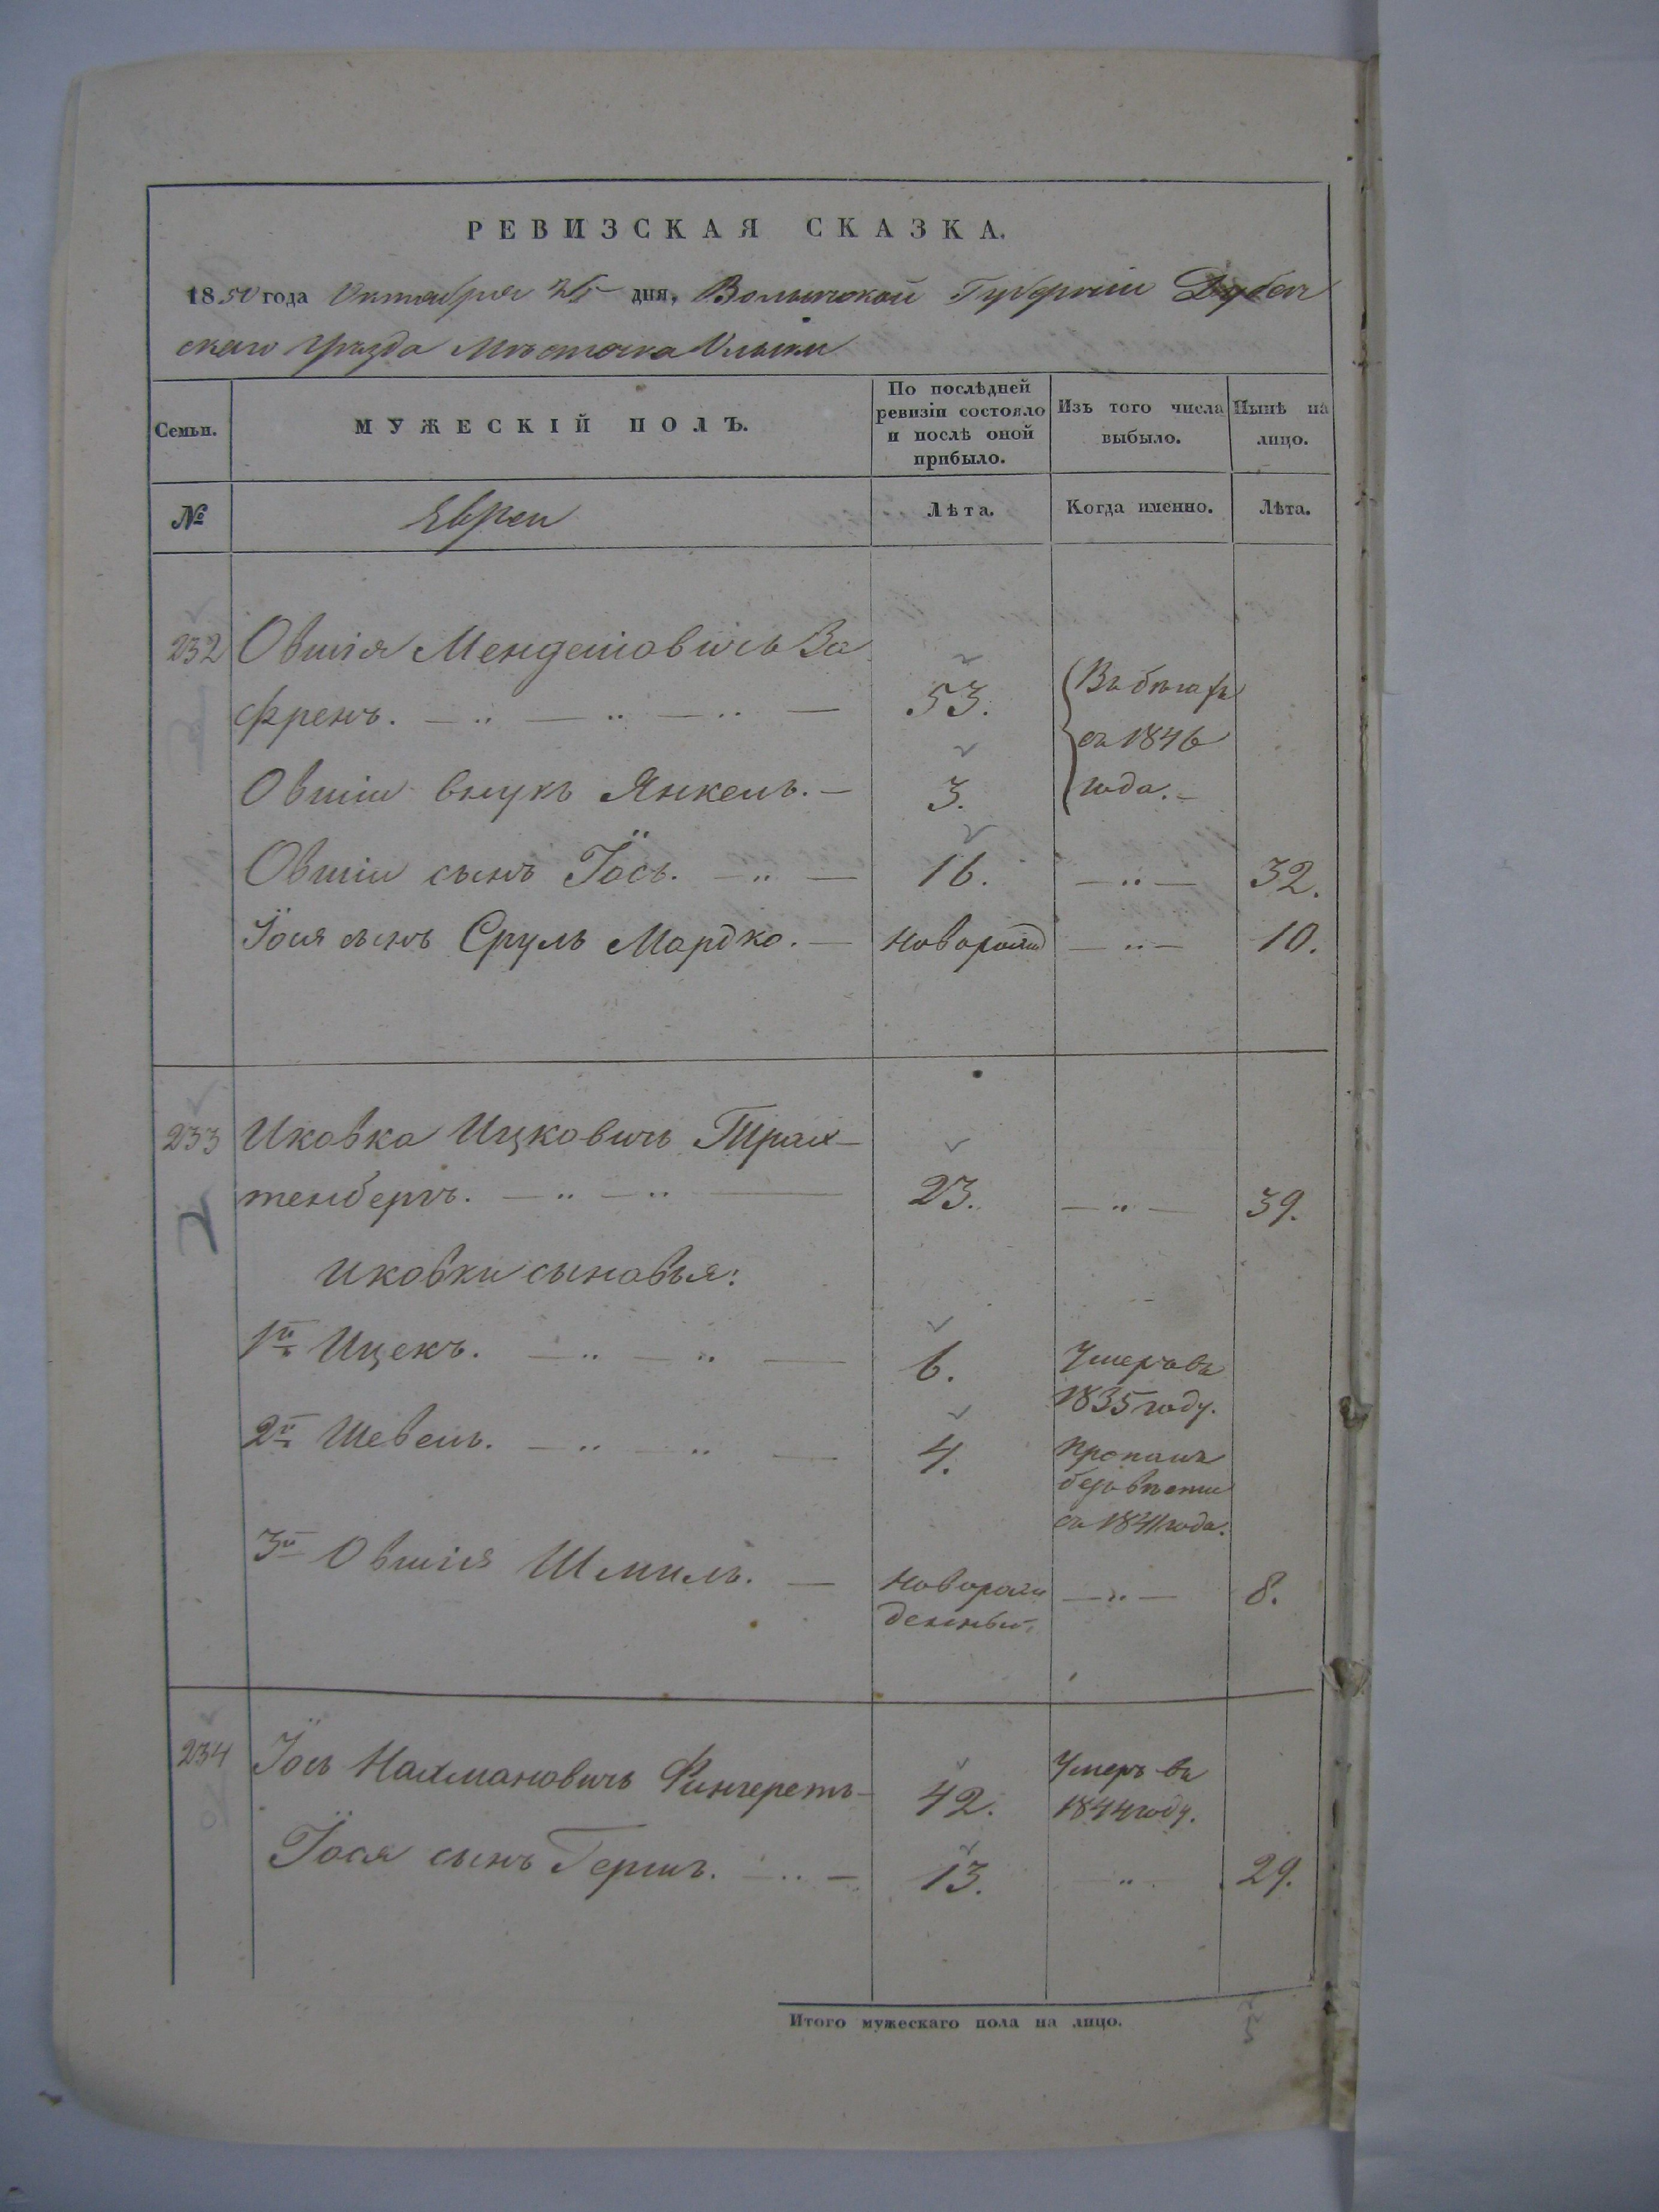 РЕВИЗСКАЯ СКАЗКА.
1850 года Октября 25 дня, Волынской Губерніи Дубен
скаго Уѣзда Мѣстечка Олыки
Семьи.
МУЖЕСКІЙ ПОЛЪ.
По послѣдней ревизіи состояло и послѣ оной прибыло.
Изъ того числа выбыло.
Нынѣ на лицо.
№
Евреи
Лѣта.
Когда именно.
Лѣта.
232 Овшія Менделіовичъ За
френъ. 53. Въ бѣгахъ
съ 1846
Овшіи внукъ Янкель. 3. года.
Овшіи сынъ Іось. 16. 32.
Іося сынъ Сруль Мордко. Новорожд 10.
233 Иковка Ицковичъ Трах-
тенбергъ. 23. 39.
Иковки сыновья:
1й Ицекъ. 6. Умеръ въ
1835 году.
2й Шевель. 4. Пропалъ
безъ вѣсти
съ 1841 года.
3й Овшія Шмиль. Новорож
денный. 8.
234 Іось Нахмановичъ Фингеретъ 42. Умеръ въ
1844 году.
Іося сынъ Гершъ. 13. 29.
Итого мужескаго пола на лицо.
5